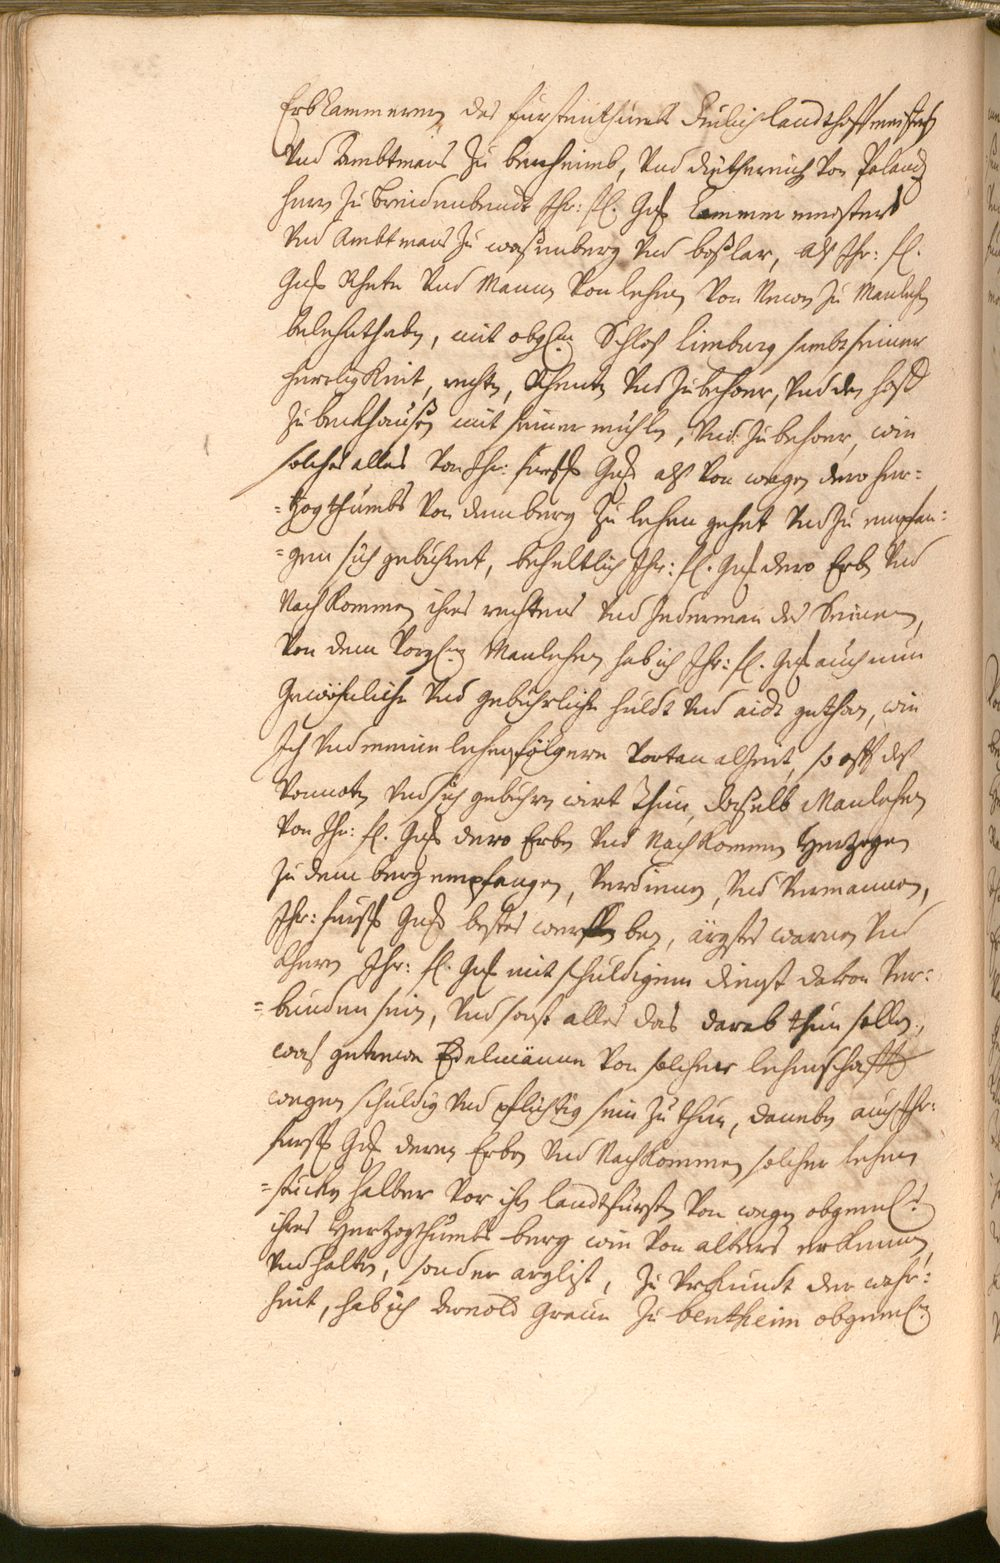 ErbCammeren des furstenthumbs Gulich landthoffmeisters
Vnd Ambtmans zu benheimb, Vnd Dietherich Von Paland
Herr zu Breidenbendt Ihr: fl. Gnd Cammermeisters
Vnd Ambtmans zu waßenberg Vnd boßlar, als Ihr: fl.
Gnd Rhete Vnd Mannen Von lehen Von Newen zu Manlehen
belehnt haben, mit obgln Schloß limburg sambt seiner
herrligkeit, rechten, Rhenten Vnd Zubehoer, Vnd den hoff
zu berckhaußen mit seiner muhlen, Vnd Zubehoer, wie
solches alles Von Ihr: furstl Gnd als Von wegen dero Her:
=tzogthumbs Von dem berg zu lehen gehet Vnd zu empfan:
=gen sich gebuhret, beheltlich Ihr: fl. Gnd dero Erben Vnd
NachKommen ihres rechtens Vnd Jederman des Seinen,
Von dem Vorgln Manlehen hab ich Ihr: fl. Gnd auch nun
Gewöhnliche Vnd gebuhrliche huldt Vnd aidt gethan, wie
Ich Vnd meine lehensfölgere Vortan alzeit, so offt deß
Vonnoten Vnd sich gebuhren wirt thun, daßelb Manlehen
Von Ihr: fl. Gnd dero Erben Vnd NachKommen Hertzogen
zu dem berg empfangen, Verdienen, Vnd Vermannen,
Ihr: furstl Gnd bestes werben, ärgstes warnen Vnd
Kheren Ihr: fl. Gnd mit schuldigem dienst davon Ver:
=bunden sein, Vnd sonst alles das darab thun sollen,
was getrewe Edelmänner Von solcher lehenschafft
wegen schuldig Vnd pflichtig sein zu thun, daneben auch Ihr:
furstl Gnd deren Erben Vnd NachKommen solcher lehen
=stucken halber Vor ihr landtfursten Von wegen obgemelt:
ihres Hertzogthumbs berg wie Von alters erKennen,
Vnd halten, sonder arglist, zu Vrkundt der wahr:
heit, hab ich Arnold Graue zu bentheim obgemeln